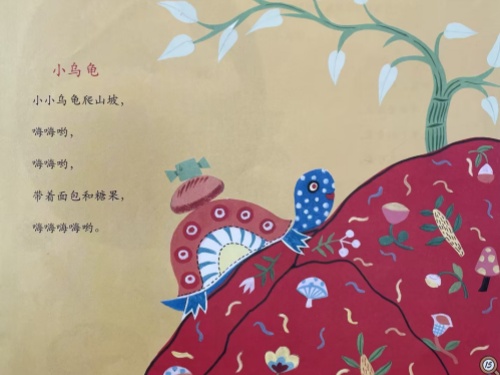 小乌龟
小小乌龟爬山坡，
嗨嗨哟，
嗨嗨哟，
带着面包和糖果，
嗨嗨嗨嗨哟。
15